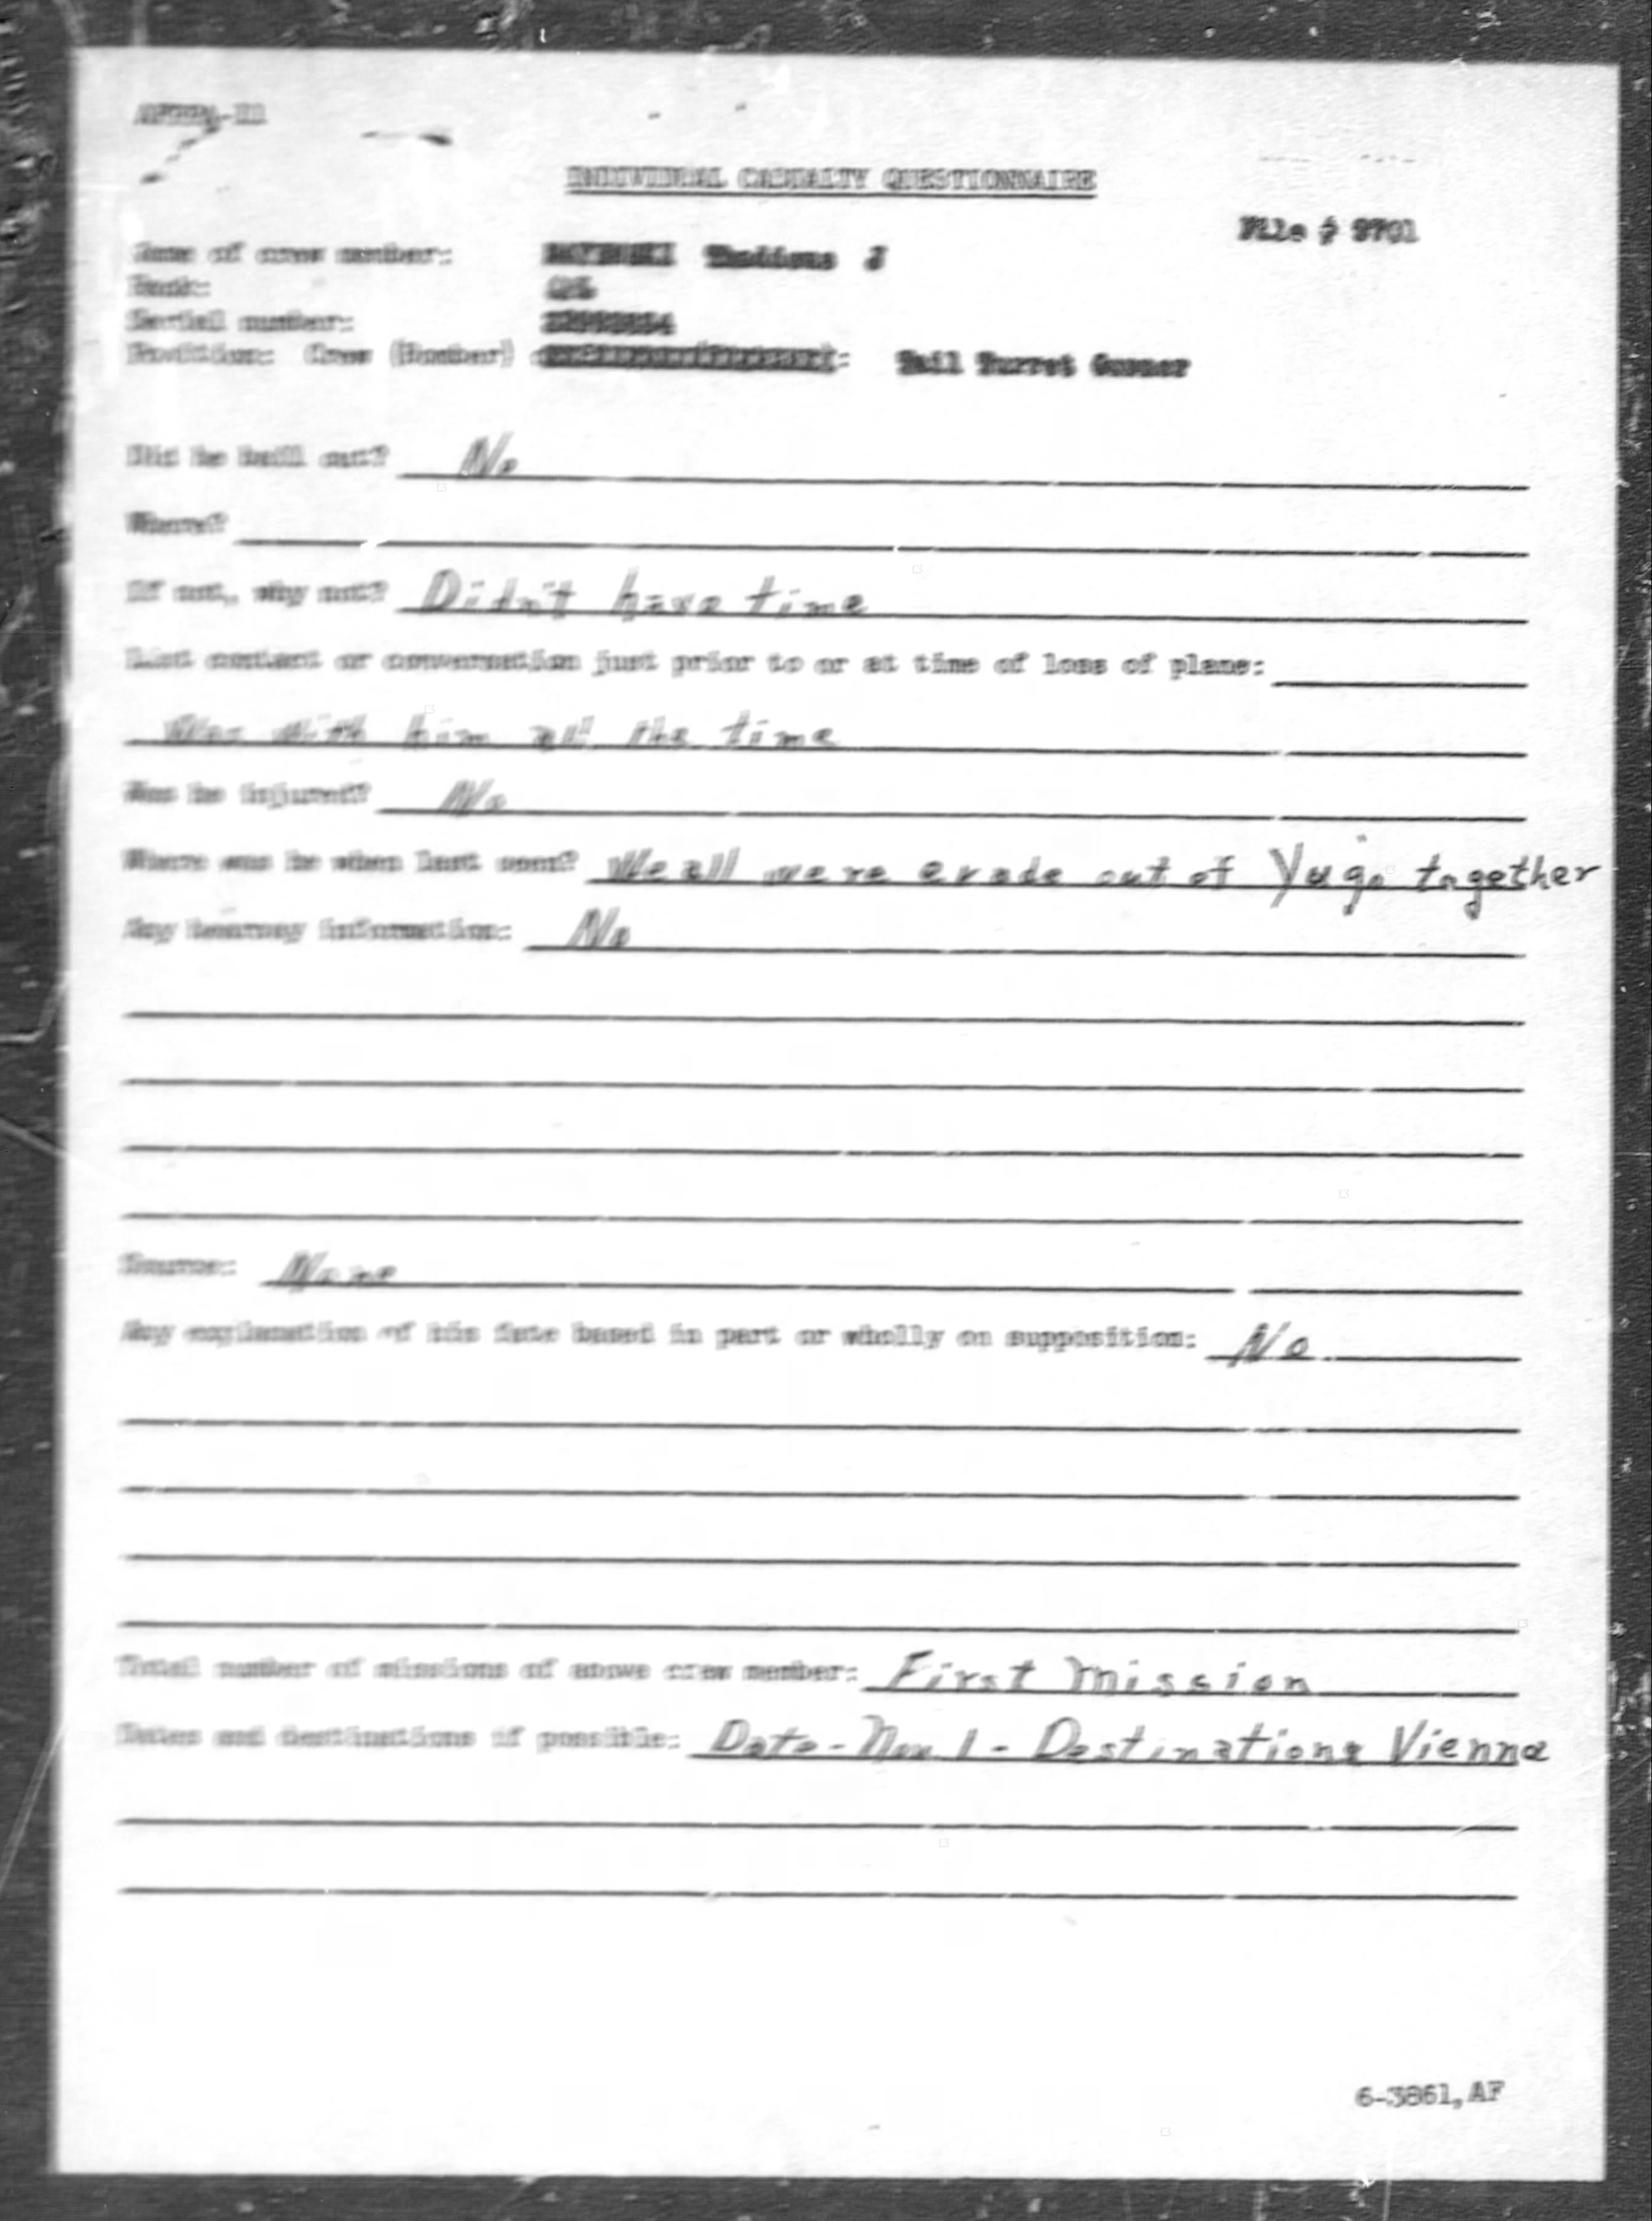 INDIVIDUAL CASUALTY QUESTIONNAIRE
File # 9701
Name of crew member: Thaddeus J
Rank: Cpl
Serial number:
Position: Crew (Bomber) Tail Turret Gunner
Did he bail out? No
Where?
If not, why not? Didn't have time
Last contact or conversation just prior to or at time of loss of plane:
Was with him all the time
Was he injured? No
Where was he when last seen? We all were evade out of Yugo together
Any hearsay information: No
Source: None
Any explanation of his fate based in part or wholly on supposition: No.
Total number of missions of above crew member: First Mission
Dates and destinations if possible: Date - Nov 1 - Destinations Vienna
6-3861, AF